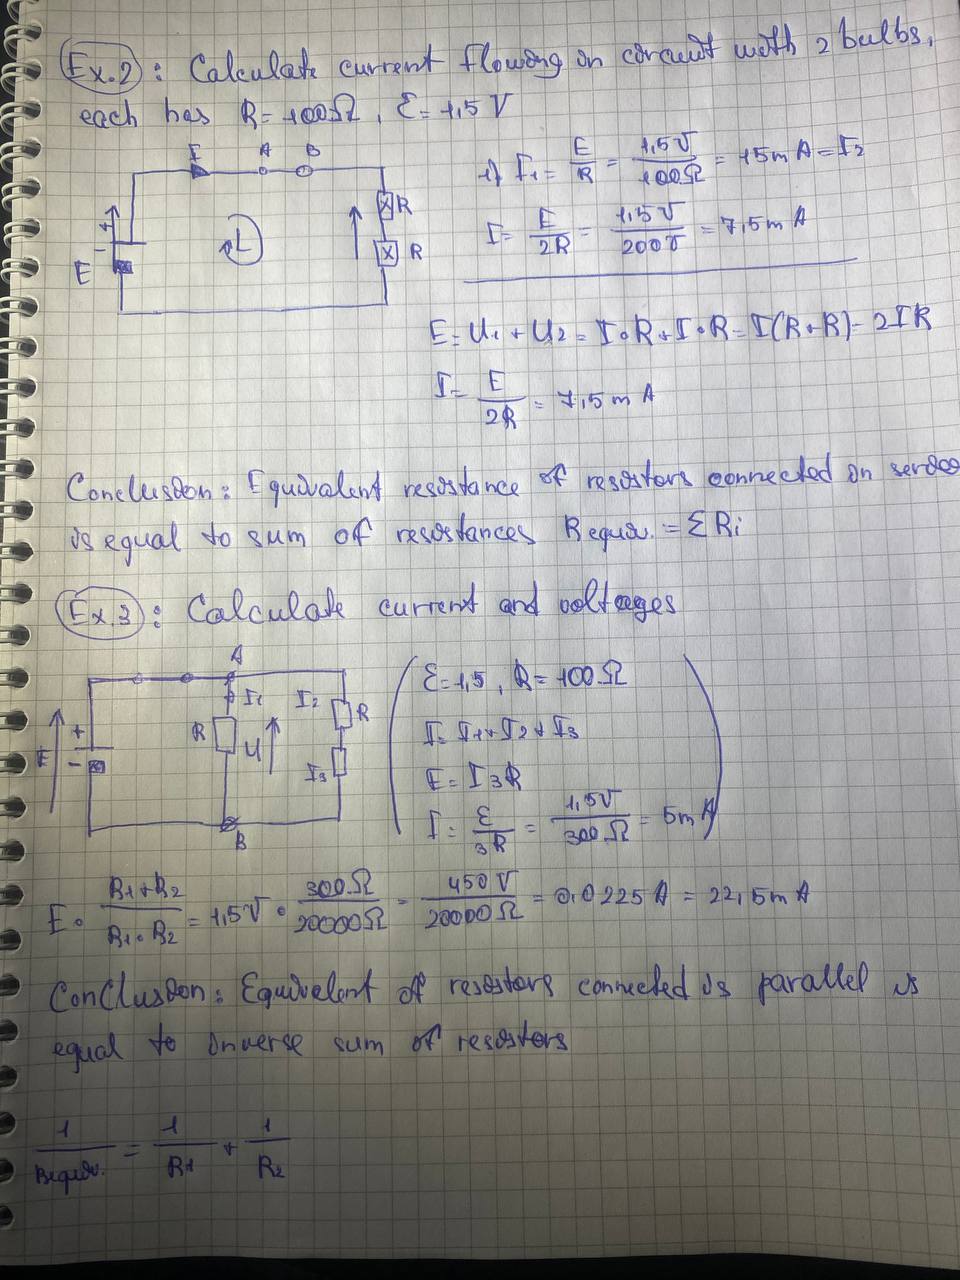 Ex.2: Calculate current flowing in circuit with 2 bulbs,
each has R=100Ω, Ɛ=1,5V
I A B
1) I1 = E/R = 1,5V/100Ω = 15mA = I2
+ - E R R
I = E/2R = 1,5V/200V = 7,5mA
E = U1 + U2 = I∘R + I∘R = I(R+R) = 2IR
I = E/2R = 7,5mA
Conclusion: Equivalent resistance of resistors connected in series
is equal to sum of resistances Requiv. = ΣRi
Ex.3: Calculate current and voltages
A
Ɛ=1,5, R=100Ω
+ - E R I1 U I2 R I3
I = I1+I2+I3
E = I3R
B
I = Ɛ/3R = 1,5V/300Ω = 5mA
E∘ R1+R2/R1∘R2 = 1,5V ∘ 300Ω/20000Ω = 450V/20000Ω = 0,0225A = 22,5mA
Conclusion: Equivalent of resistors connected is parallel is
equal to inverse sum of resistors
1/Requiv. = 1/R1 + 1/R2